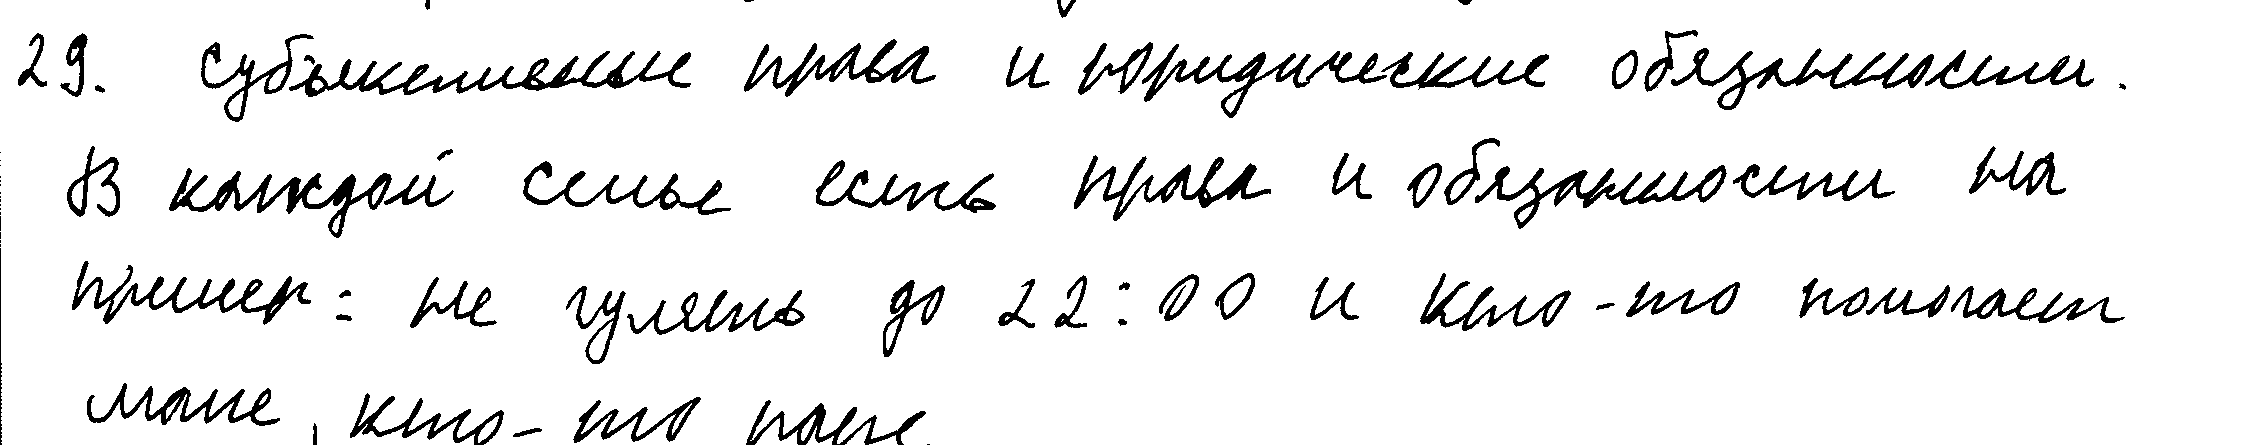 29. Субъективные права и юридические обязанности.
В каждой семье есть права и обязанности на
пример: не гулять до 22:00 и кто-то помогает
маме, кто-то папе.